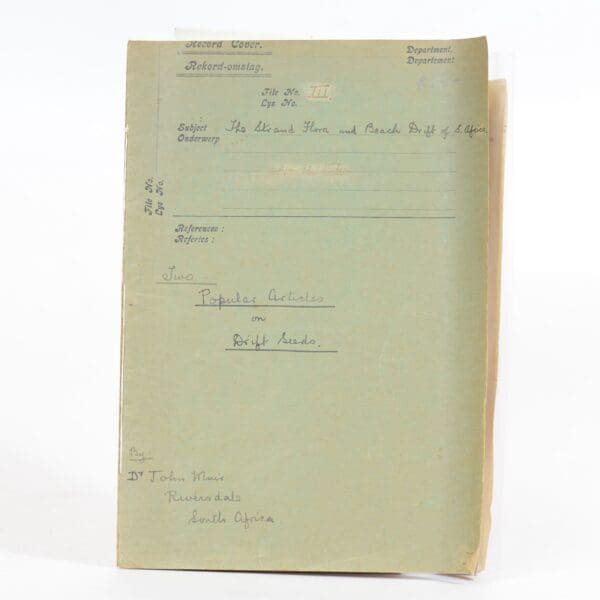 Record Cover.
Rekord-omslag.
Department.
Departement
File No. III
Lys No.
Subject The Strand Flora and Beach Drift of S. Africa
Onderwerp
File No.
Lys No.
References :
Referies :
Two
Popular Articles
on
Drift Seeds.
By
Dr John Muir
Riversdale
South Africa